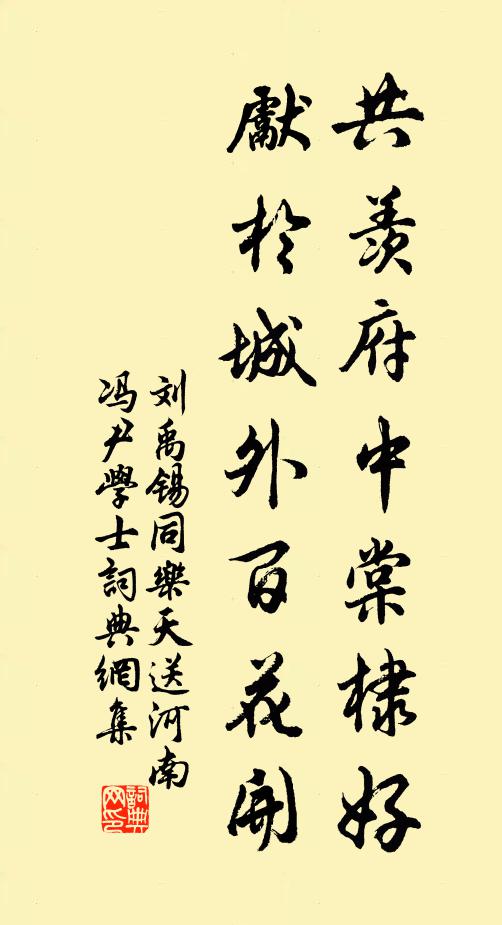 共羨府中棠棣好
獻於城外百花開
刘禹锡同樂天送河南
冯尹學士詞典網集
詞典
网印